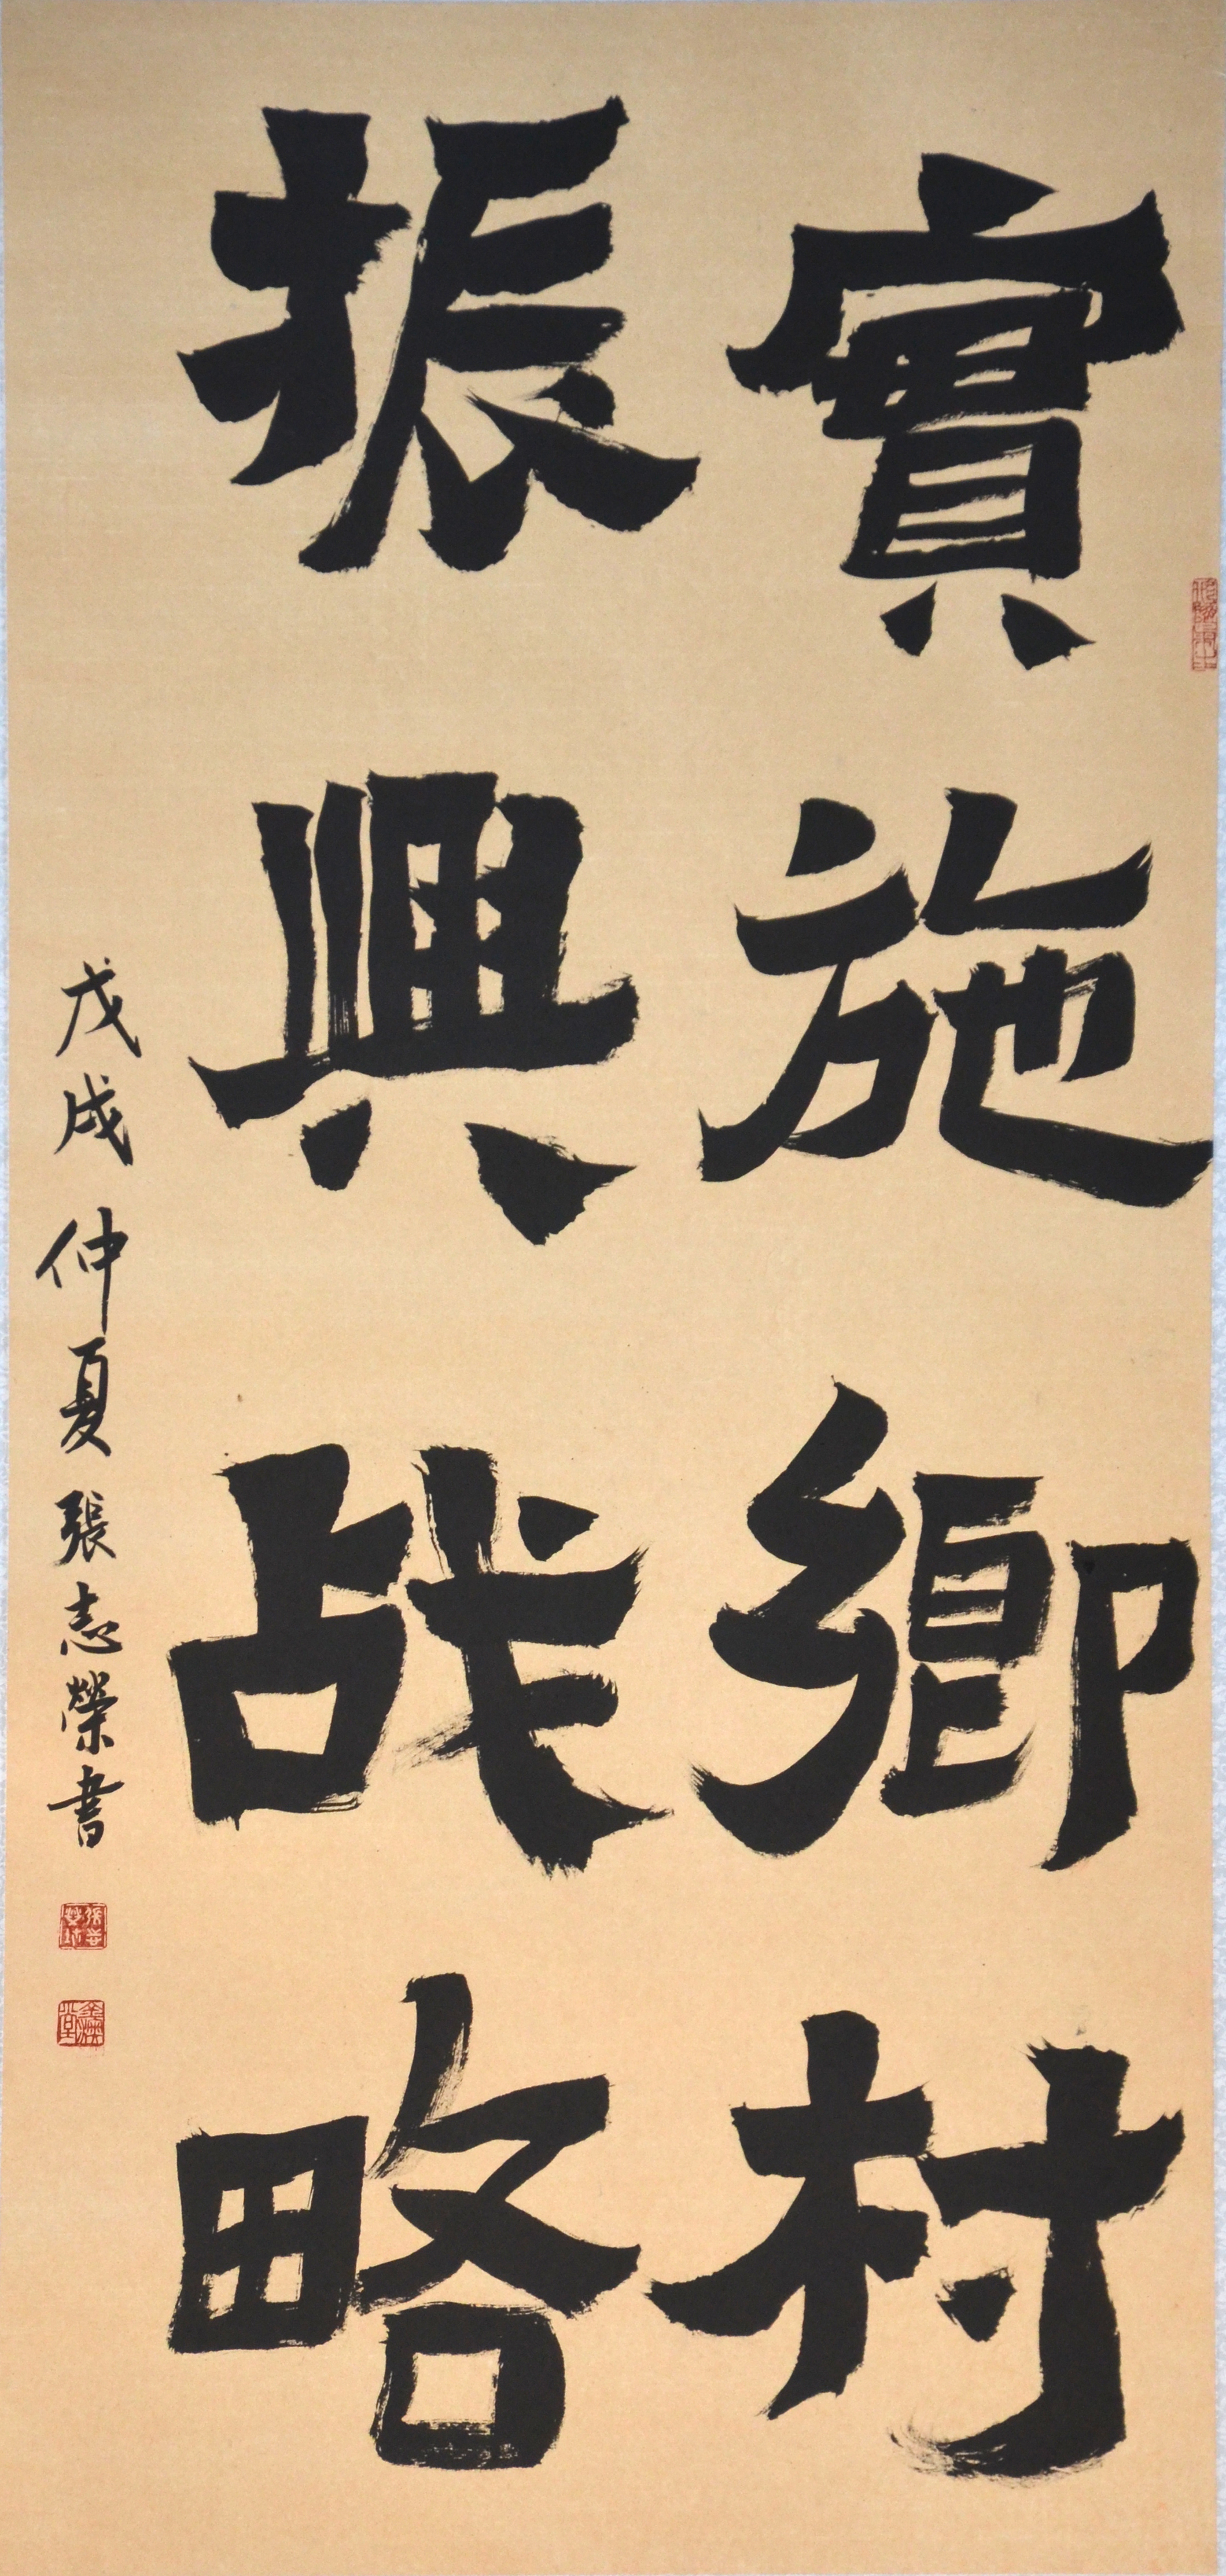 實施鄉村
振興战略
戊戌仲夏張志榮書